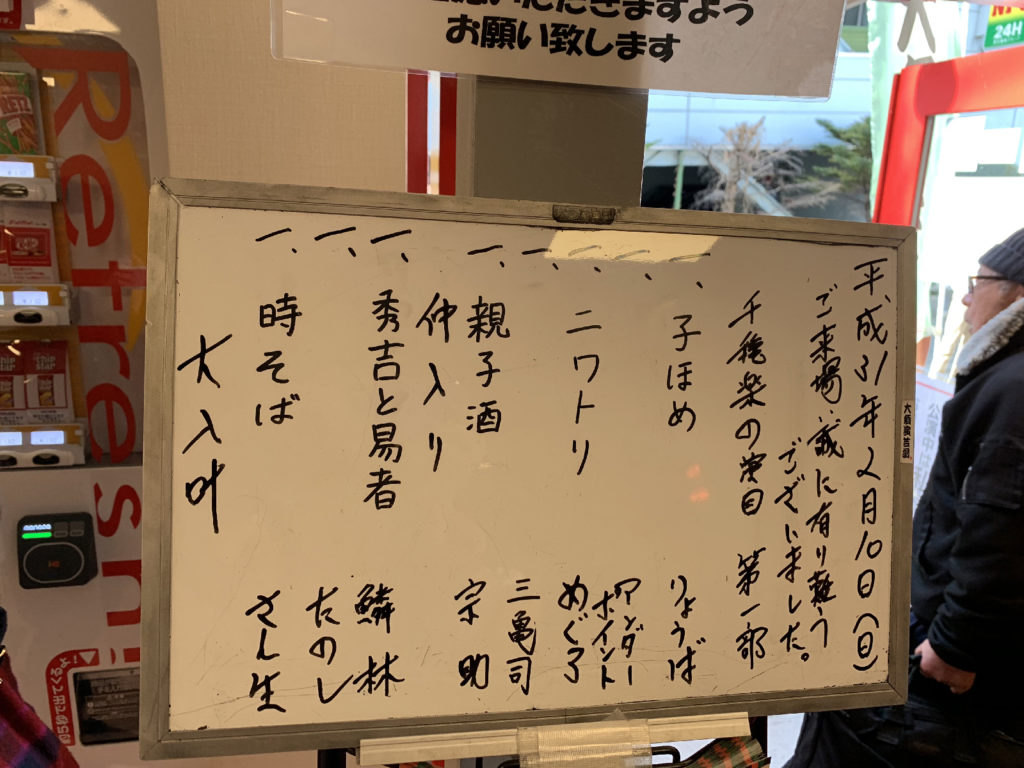 お願い致します
平成31年2月10日(日)
ご来場、誠に有り難う
ございました。
千穐楽の演目 第一部
一、子ほめ りょうば
一、
一、ニワトリ アンダー
ポイント
一、 めぐろ
一、 三亀司
一、親子酒 宗助
仲入り
一、秀吉と易者 鱗林
一、 たのし
一、時そば さん生
大入叶
大須演芸場
Refresh
24H